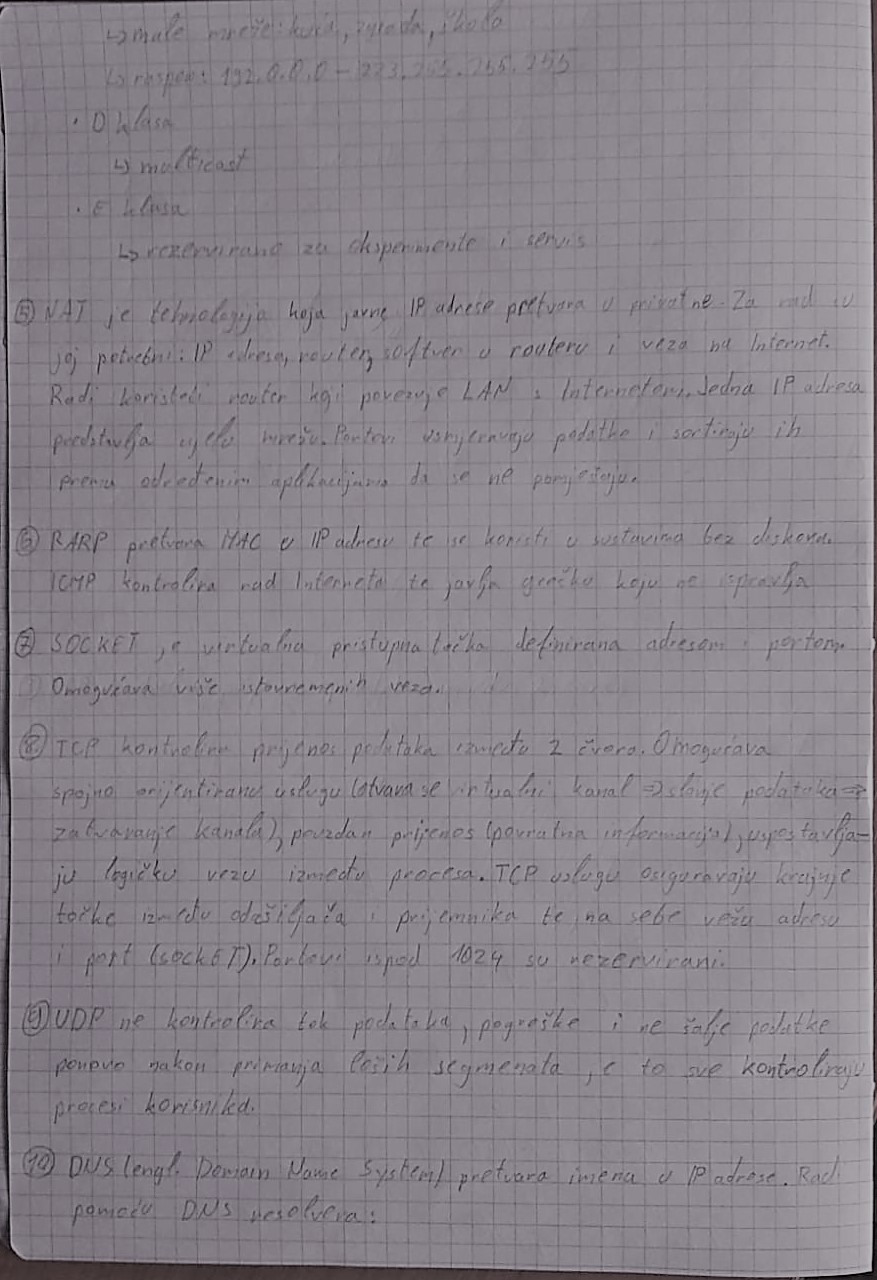 ↳ male mreže: kuća, zgrada, škola
↳ raspon: 192.0.0.0 – 223.255.255.255
• D klasa
↳ multicast
• E klasa
↳ rezervirano za eksperimente i servis
⑤ NAT je tehnologija koja javne IP adrese pretvara u privatne. Za rad su
joj potrebni: IP adresa, router, softver u routeru i veza na Internet.
Radi koristeći router koji povezuje LAN s Internetom. Jedna IP adresa
predstavlja cijelu mrežu. Portovi usmjeravaju podatke i sortiraju ih
prema određenim aplikacijama da se ne pomješaju.
⑥ RARP pretvara MAC u IP adresu te se koristi u sustavima bez diskova.
ICMP kontrolira rad Interneta te javlja grešku koju ne ispravlja
⑦ SOCKET je virtualna pristupna točka definirana adresom i portom.
Omogućava više istovremenih veza.
⑧ TCP kontrolira prijenos podataka između 2 čvora. Omogućava
spojno orijentiranu uslugu (otvara se virtualni kanal => slanje podataka =>
zatvaranje kanala), pouzdan prijenos (povratna informacija), uspostavlja-
ju logičku vezu između procesa. TCP uslugu osiguravaju krajnje
točke između odašiljača i prijemnika te na sebe vežu adresu
i port (SOCKET). Portovi ispod 1024 su rezervirani.
⑨ UDP ne kontrolira tok podataka, pogreške i ne šalje podatke
ponovo nakon primanja loših segmenata, te to sve kontroliraju
procesi korisnika.
⑩ DNS (engl. Domain Name System) pretvara imena u IP adrese. Radi
pomoću DNS resolvera: